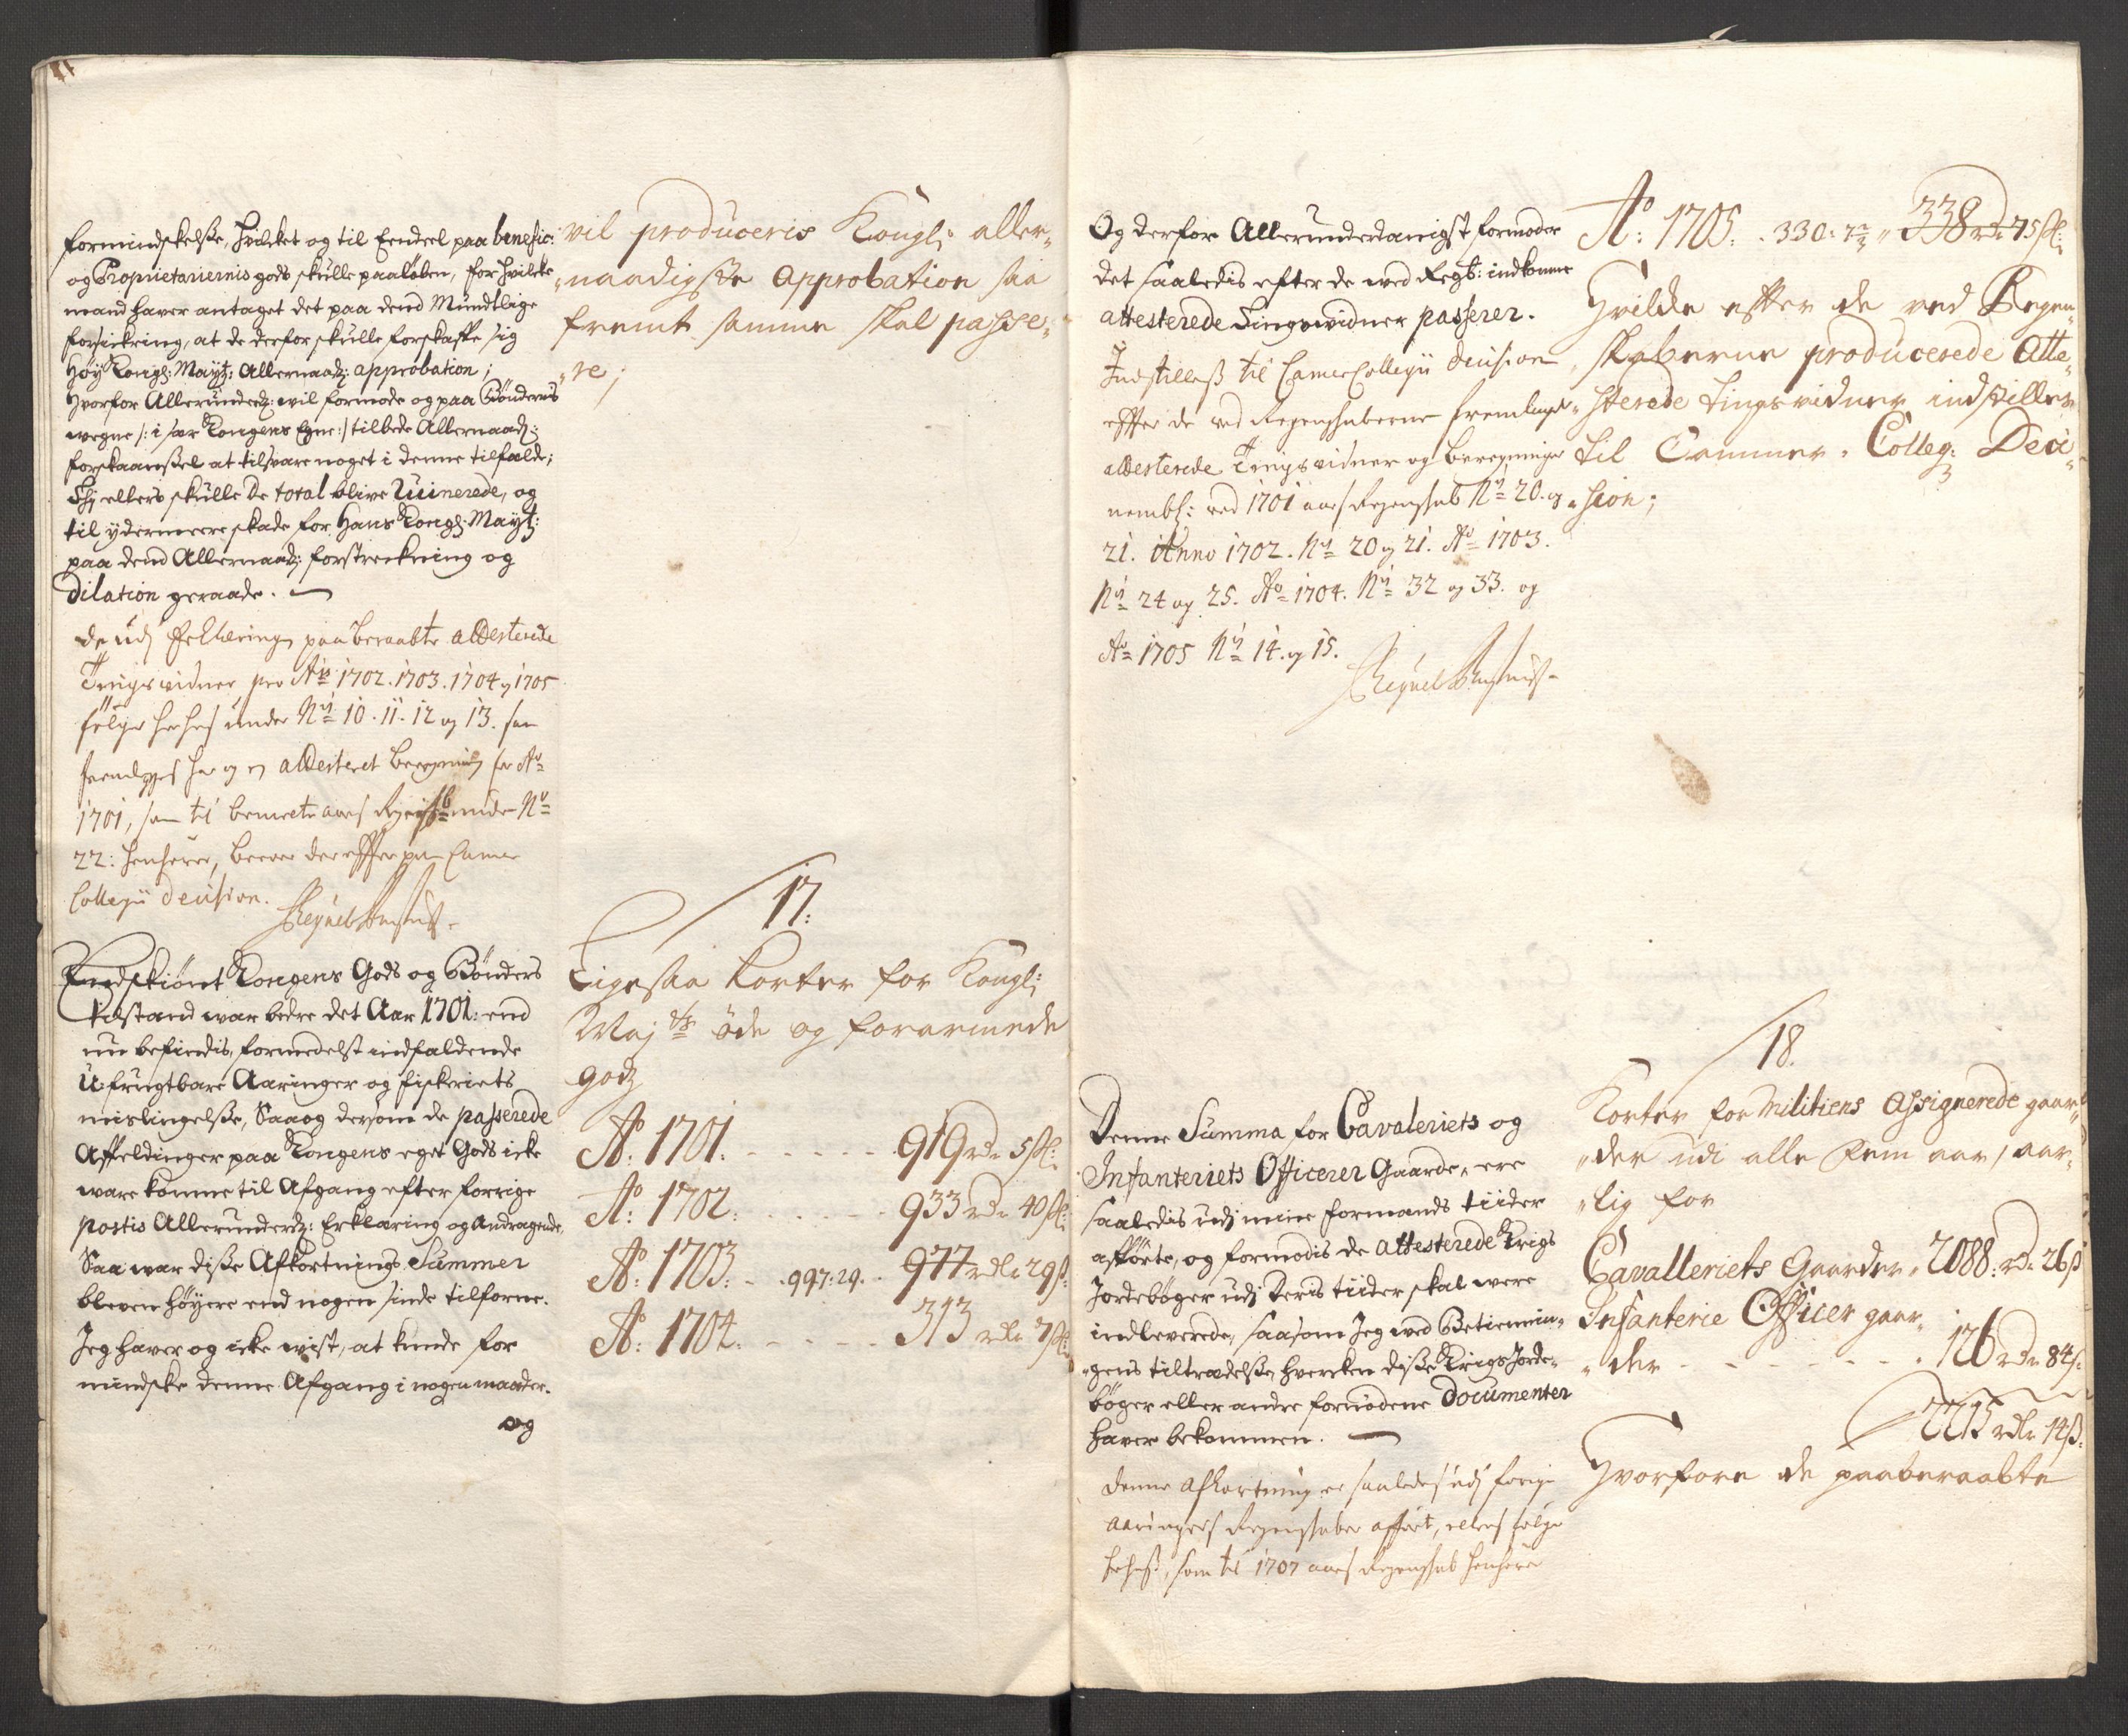 formindskelße, hvilket og til Eendeel paa benefic:
og Proprietariernis gods skulle paaløben, for hvilcke
mand haver antaget det paa dend Mundtlige
forsickring, at de derfor skulle forskaffe sig
Høy Kongl: Mayt: Allernaad: approbation;
Hvorfor Allerunderd: vil formode og paa Bøndernis
wegne /: i sær Kongens Egne :/ tilbede Allernaad:
forskaanßel at tilsvare noget i denne tilfælde;
Thj ellers skulle De total blive Ruinerede, og
til ydermeere skade for Hans Kongl: Mayt:
paa dend Allernaad: forstreckning og
Dilation geraade.
de udj Erklæringen paaberaabte atesterede
Tingsvidner pro Ais 1702. 1703. 1704 og 1705
følger herhos under No 10. 11. 12 og 13. saa
fremlegges her og en attesteret beregning for Ao
1701, som til bemeelte aars Regenskb under No
22: henhører, beroer derefter paa Camer
Collegii decision.
Endskiønt Kongens Gods og Bønders
tilstand war bedre det Aar 1701: end
nu befindis, formedelst indfaldende
Ufrugtbare Aaringer og fiskeriets
mislingelße, Saa og dersom de passerede
Affeldinger paa Kongens eget Gods icke
ware komne til Afgang efter forrige
postis Allerunderd: Erklæring og Andragende,
Saa war diße Afkortnings Summer
bleven høyere end nogen sinde tilforne.
Jeg haver og icke wist, at kunde for
mindske denne Afgang i nogen maader.
og
vil produceris Kongl: aller-
naadigste approbation saa
fremt samme skal passe-
re;
17:
Ligesaa korter for Kongl:
Majts øde og forarmede
godz
Ao: 1701. - - - - - 919 rdr 5 ſſ:
Ao: 1702: - - - - 933 rdr 40 ſſ:
Ao: 1703: - . 997:29. - 977 rdlr 29 ß
Ao: 1704. - - - - 313 rdlr 7 ſſ:
Og derfor Allerunderdanigst formoder
det saaledis efter de wed Regb: indkomne
attesterede Tingswidner passerer.
Indstilleß til CamerCollegii Decision
efter de ved Regenskaberne fremlagde
attesterede Tingsvidner og beregninger
nembl: ved 1701 aars Regenskab No 20. og
21. Anno 1702. No 20 og 21. Ao 1703.
No 24 og 25. Ao 1704. No 32 og 33. og
Ao 1705 No 14. og 15.
Denne Summa for Cavaleriets og
Infanteriets Officerer Gaarde, ere
saaledis udj mine formands tiider
afførte, og formodis de attesterede Krigs
Jordebøger udj deris tiider skal were
indleverede, saasom Jeg wed Betiennin-
gens tiltrædelße hvercken diße Krigs Jorde-
bøger eller andre fornødene Documenter
haver bekommen.
denne afkortning er saaledes udj forige
aaringers Regenskaber afført, ellers følger
herhoß, som til 1707 aars Regenskab henhører
Ao: 1705. . 330: 72 „ 338 rdr 75 ſſ:
Hvilcke efter de ved Regen-
skaberne producerede Atte-
sterede tingsvidner indstilles
til Cammer-Colleg: Deci-
sion;
18.
Korter for Militiens assignerede gaar-
der udi alle fem aar, aar-
lig for
Cavalleriets Gaarder „ 2088: rdr 26 ß
Infanterie Officer gaar-
der - - - - - 126 rdr 84 ſ:
2215 rdlr 14 ß:
Hvorfore de paaberaabte